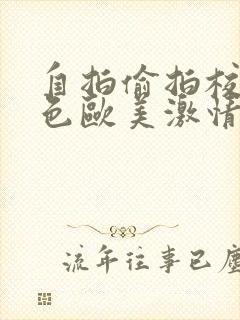 自拍偷拍校
色歐美激情
流年往事已塵